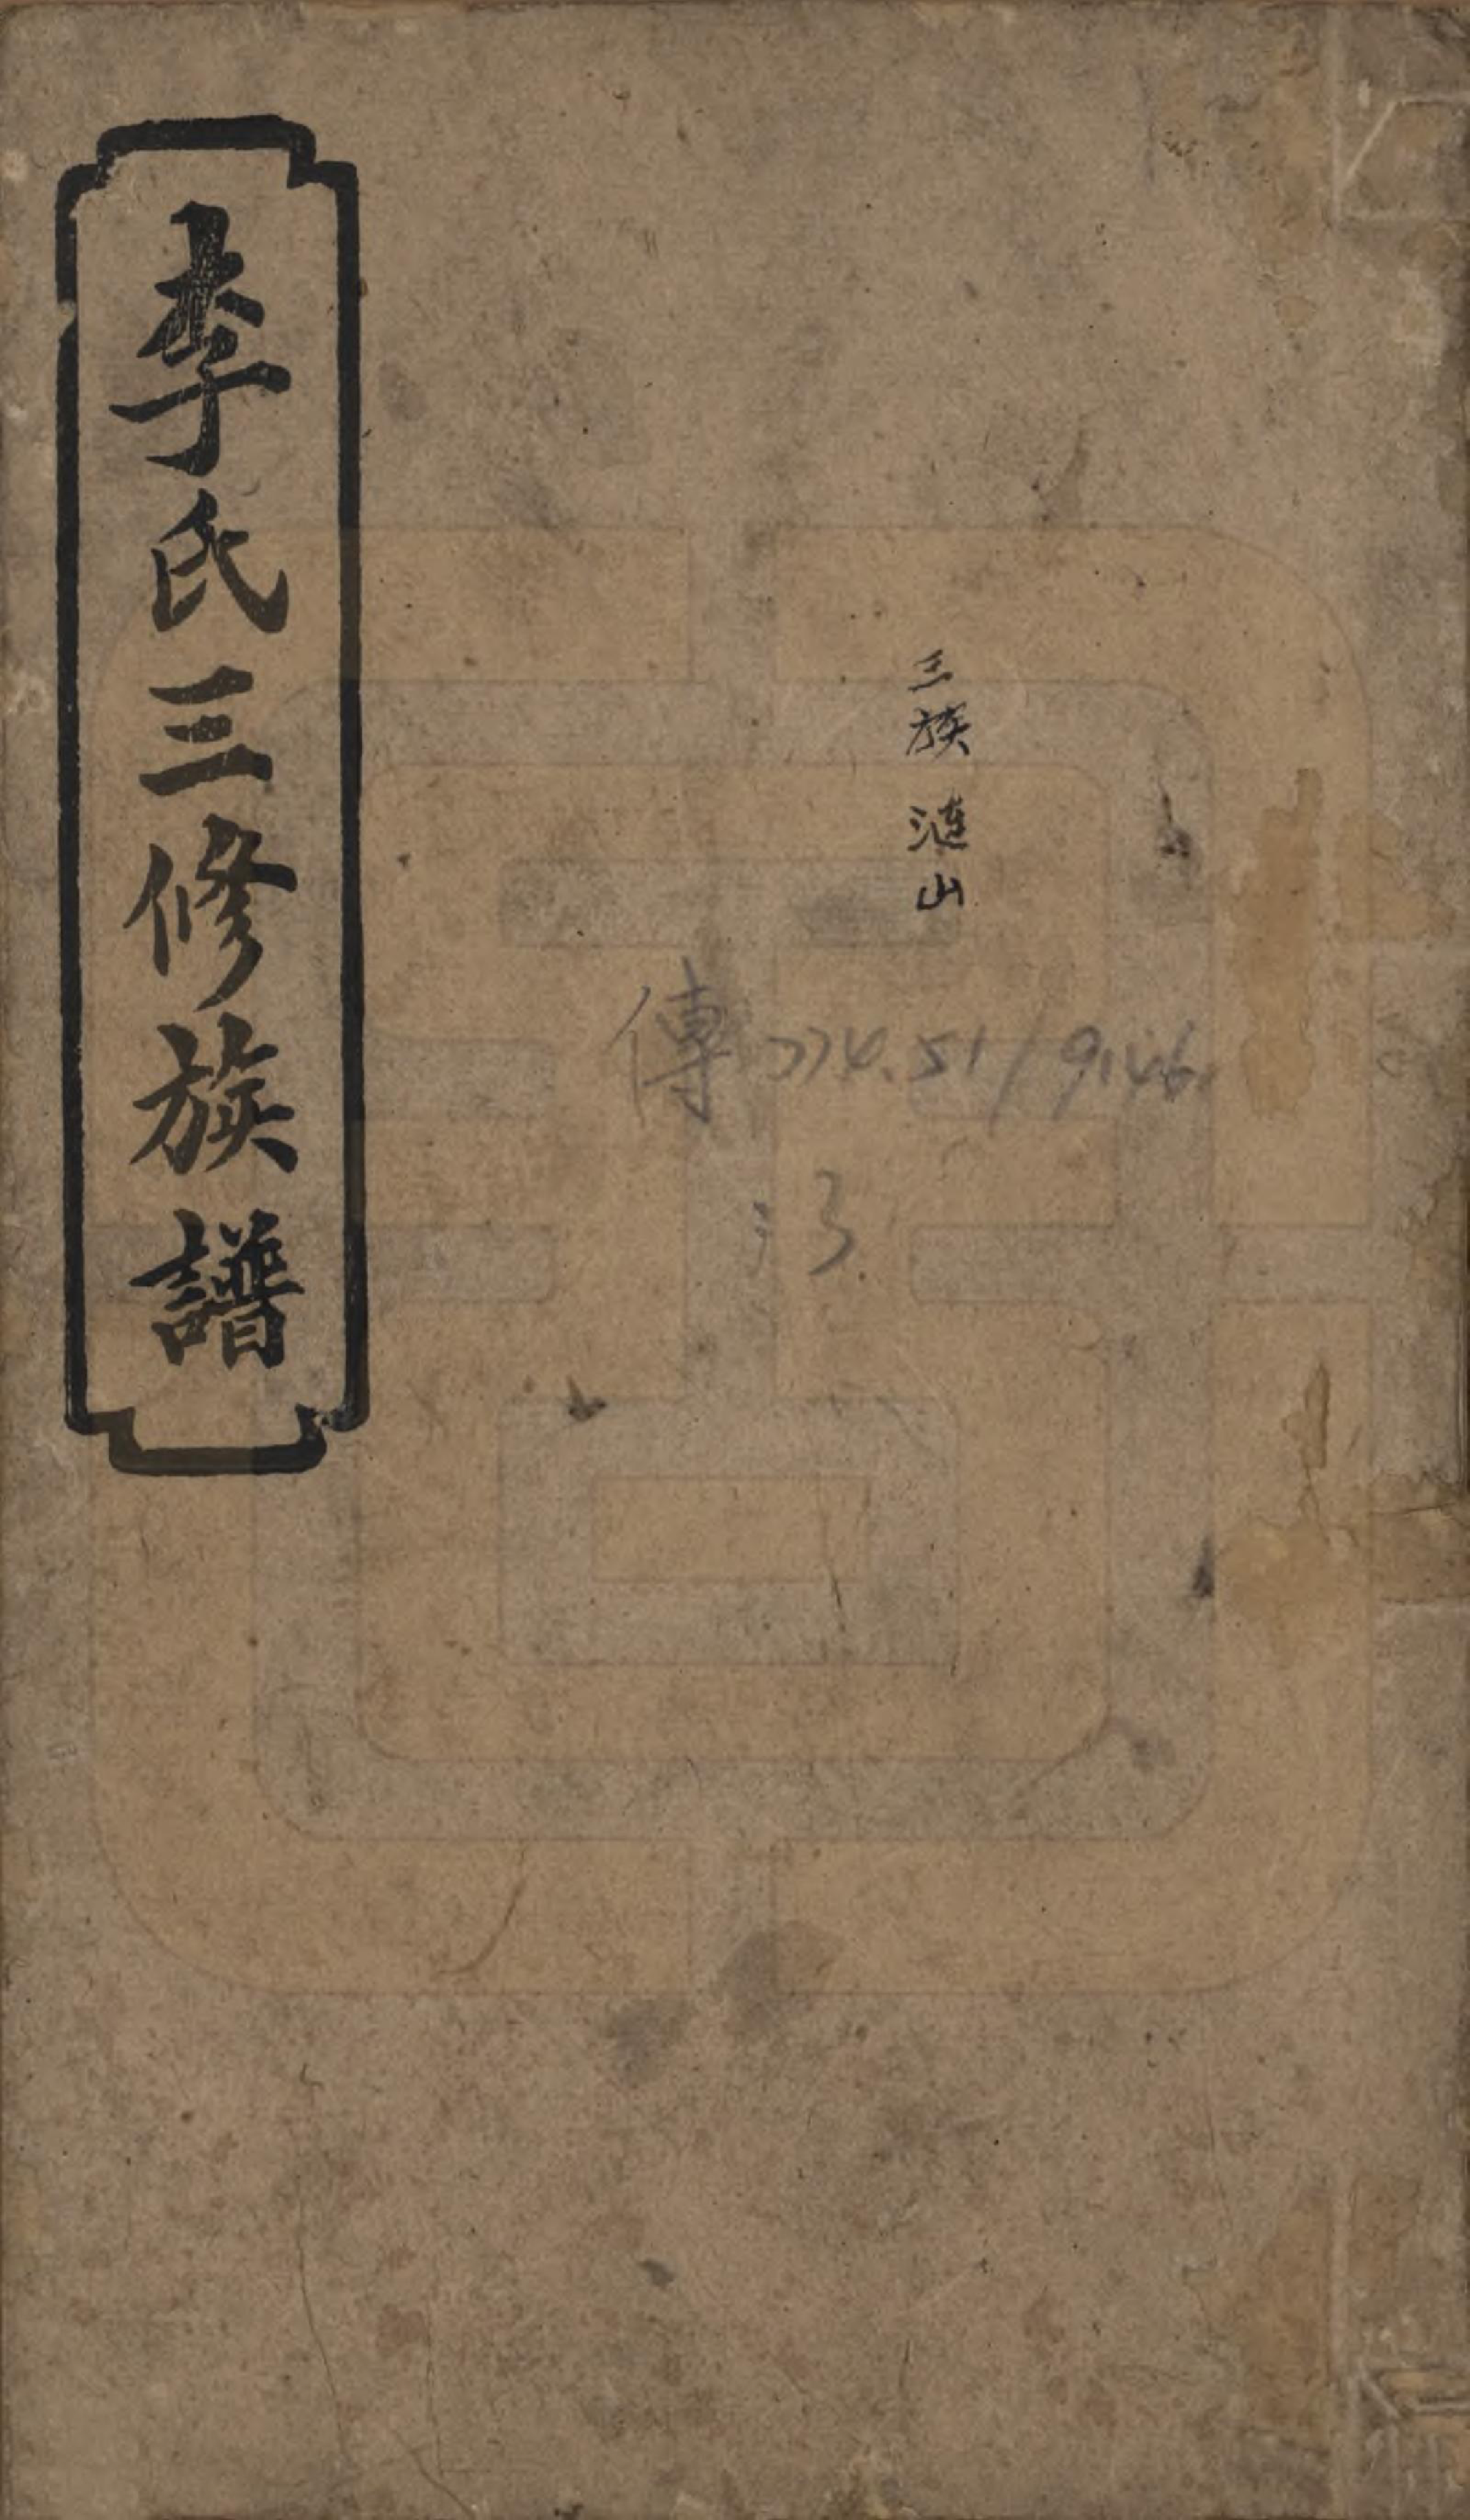 李氏三修族譜
三族 漣山
傳774.51/9.46
:3